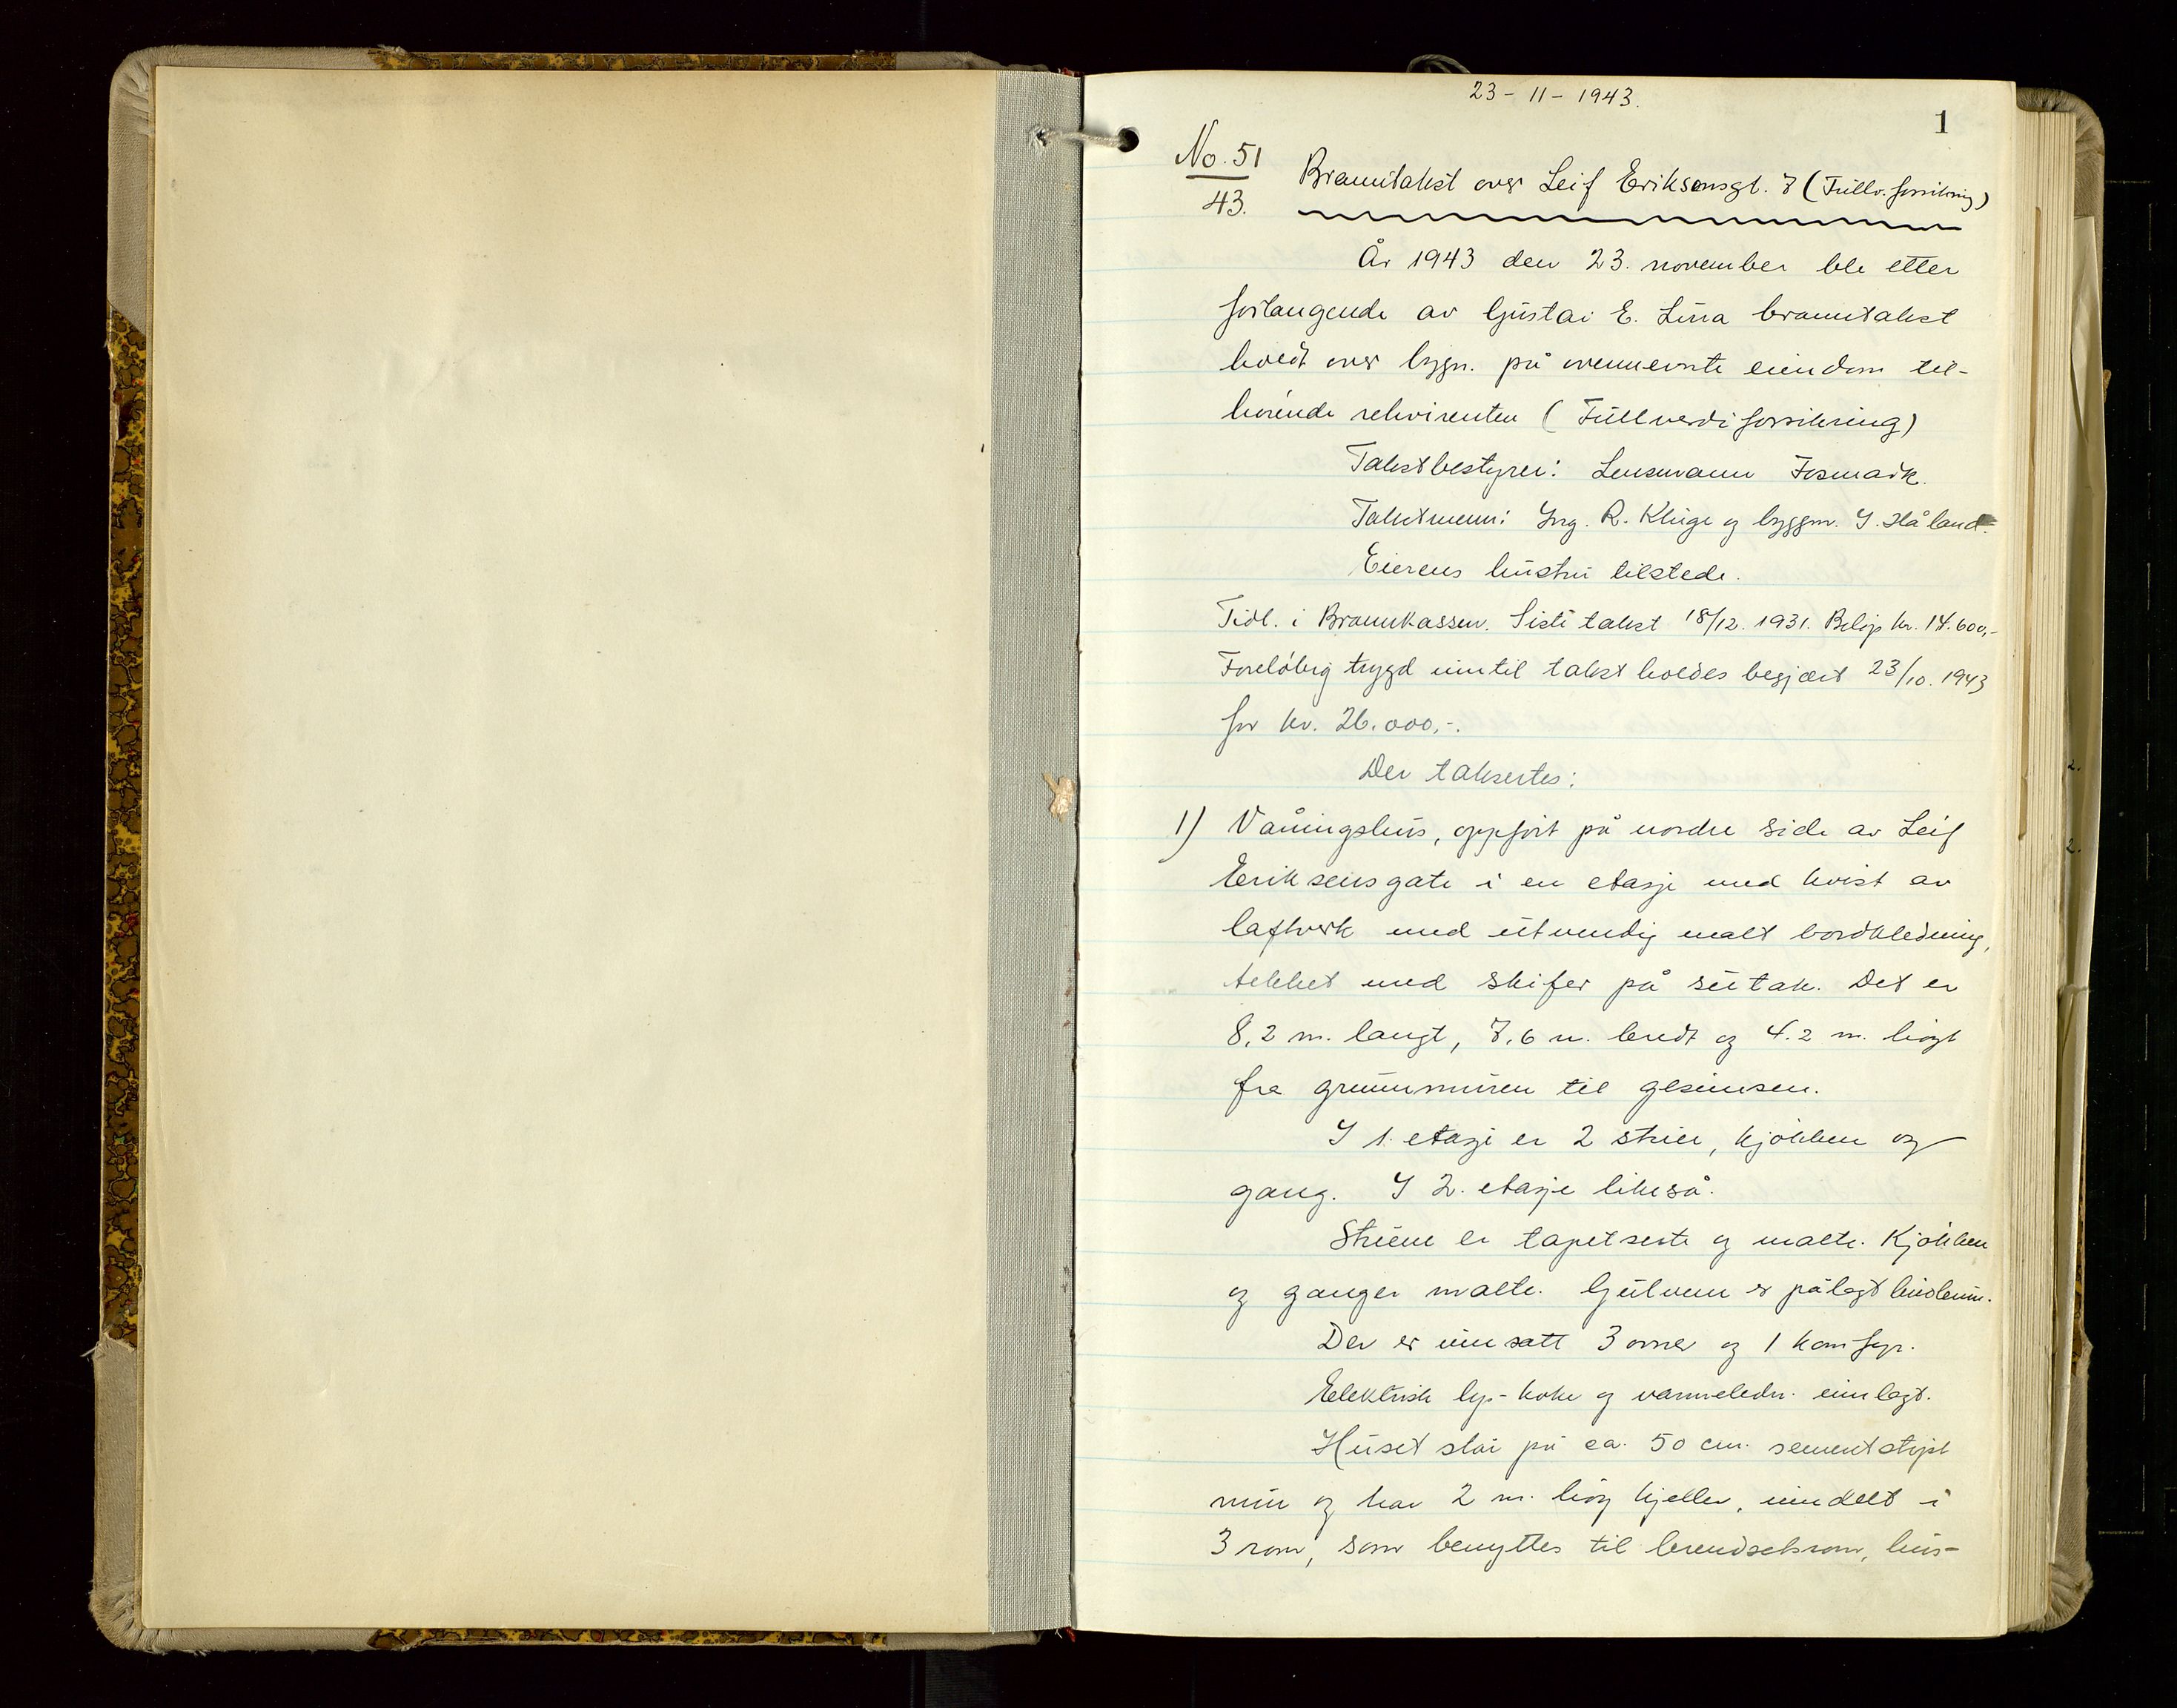 23 - 11 - 1943.
1
No. 51
43.
Branntakst over Leif Eriksonsgt. 7 (Fullv. forsikring)
År 1943 den 23. november ble etter
forlangende av Gustav E. Lura branntakst
holdt over bygn. på ovennevnte eiendom til-
hørende rekvirenten (Fullverdiforsikring)
Takstbestyrer: Lensmann Fosmark.
Takstmenn: Ing. R. Kluge og byggm. I. Håland.
Eierens hustru tilstede.
Tidl. i Brannkassen. Siste takst 18/12. 1931. Beløp kr. 14.600,-
Foreløbig trygd inntil takst holdes begjært 23/10. 1943
for kr. 26.000,-.
Der taksertes:
1) Våningshus, oppført på nordre side av Leif
Eriksensgate i en etasje med kvist av
laftverk med utvendig malt bordkledning,
tekket med skifer på sutak. Det er
8,2 m. langt, 7,6 m. bredt og 4.2 m. høgt
fra grunnmuren til gesimsen.
I 1. etasje er 2 stuer, kjøkken og
gang. I 2. etasje likeså.
Stuene er tapetserte og malte. Kjøkken
og ganger malte. Gulvene er pålagt linoleum.
Der er innsatt 3 ovner og 1 komfyr.
Elektrisk lys- koke og varmeledn. innlagt.
Huset står på ca. 50 cm. sementstøpt
mur og har 2 m. høg kjeller, inndelt i
3 rom, som benyttes til brendselsrom, hus-